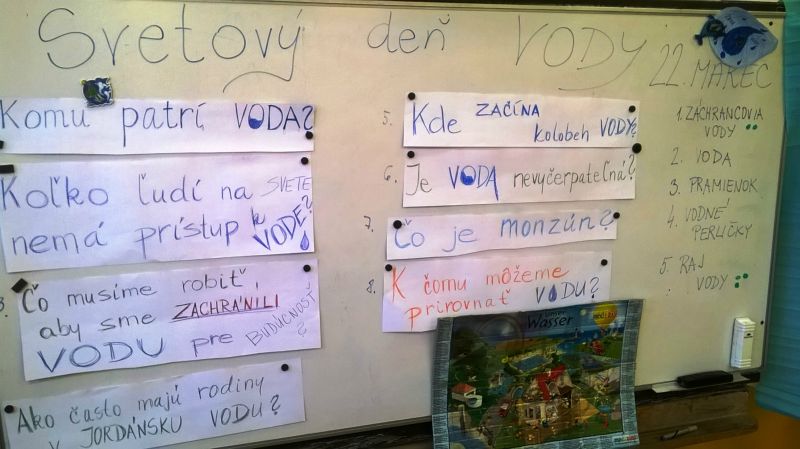 Svetový deň VODY
22. MAREC
Komu patrí VODA?
Koľko ľudí na SVETE
nemá prístup k VODE?
3.
Čo musíme robiť,
aby sme ZACHRÁNILI
VODU pre BUDÚCNOSŤ?
Ako často majú rodiny
v JORDÁNSKU VODU?
5. Kde ZAČÍNA
kolobeh VODY?
6. Je VODA nevyčerpateľná?
7. Čo je monzún?
8. K čomu môžeme
prirovnať VODU?
Wasser
1. ZÁCHRANCOVIA
VODY
2. VODA
3. PRAMIENOK
4. VODNÉ
PERLIČKY
5. RAJ
VODY